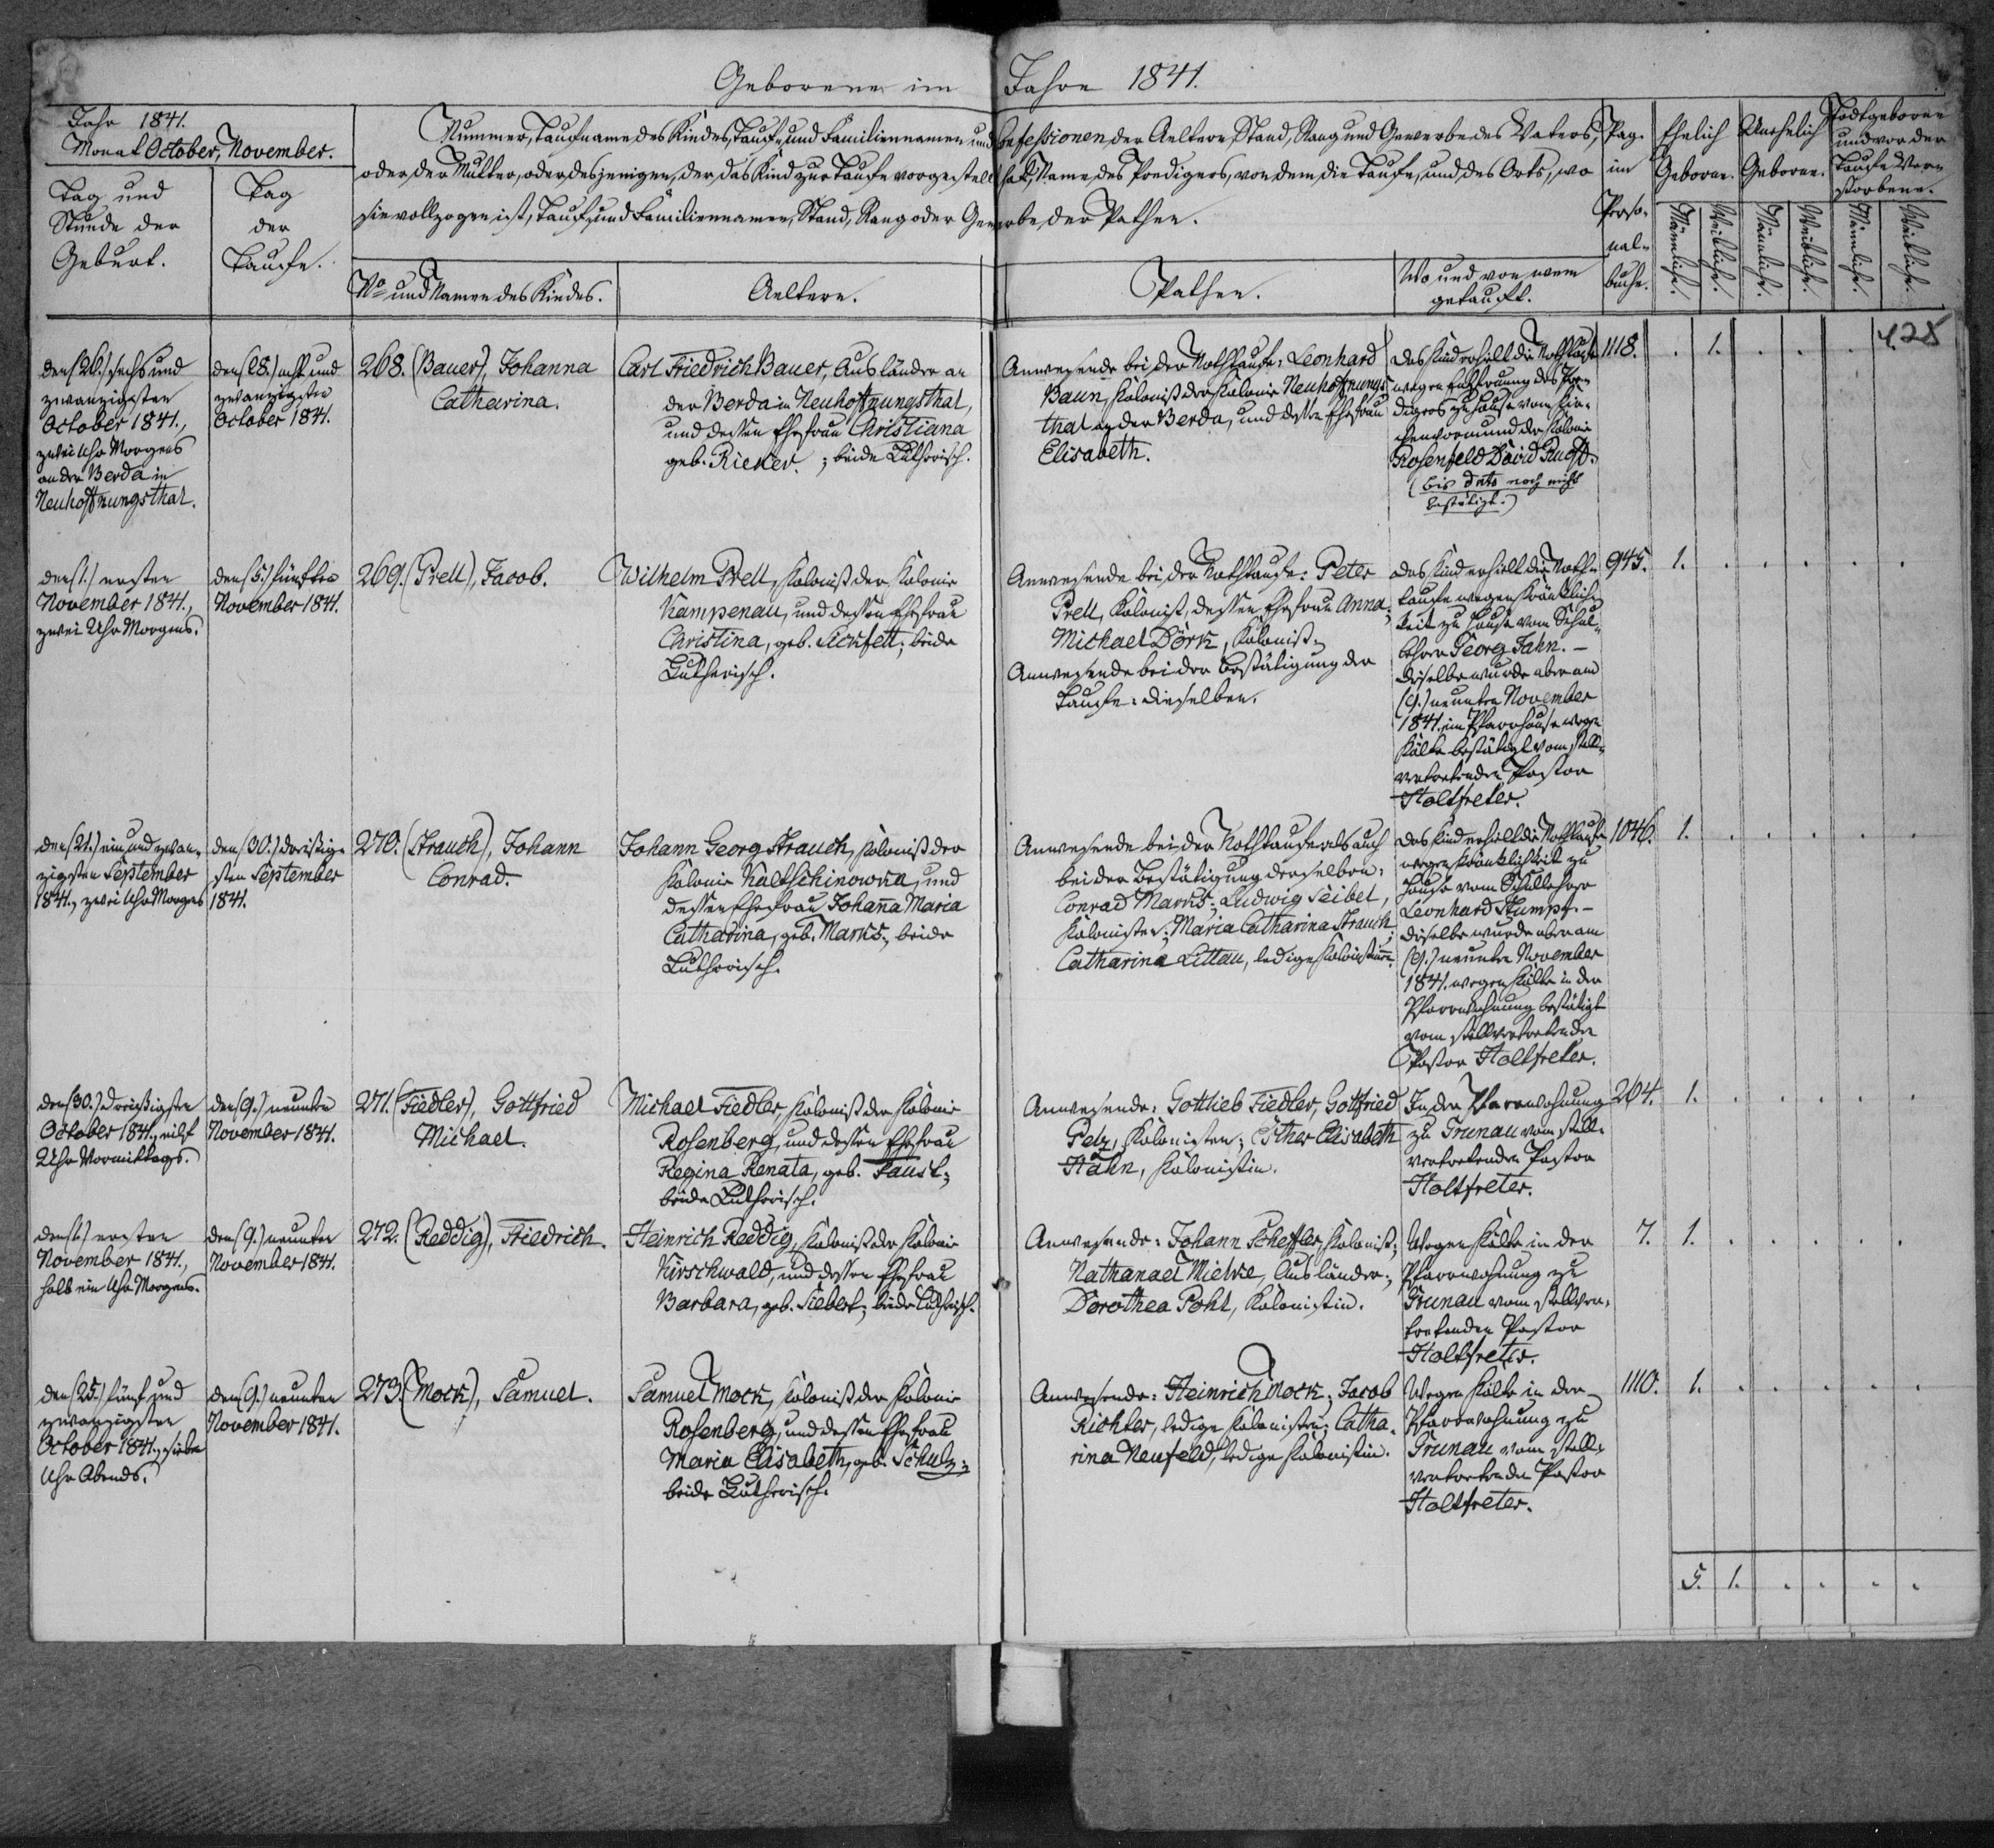 Geborene im Jahre 1841.
Jahr 1841.
Monat October, November.
Tag und
Stunde der
Geburt.
Tag
der
Taufe.
Nummer, Taufname des Kindes, Tauf- und Familiennamen und Confessionen der Aeltern, Stand, Rang und Gewerbe des Vaters,
oder der Mutter, oder desjenigen, der das Kind zur Taufe vorgestellt hat, Name des Predigers, von dem die Taufe, und des Orts, wo
sie vollzogen ist, Tauf- und Familiennamen, Stand, Rang oder Gewerbe der Pathen.
No und Namen des Kindes.
Aeltern.
Pathen.
Wo und von wem
getauft.
Pag.
im
Perso-
nal-
buche.
Ehelich
Geborne.
Unehelich
Geborne.
Todtgeborne
und vor der
Taufe Ver-
storbene.
Männlich.
Weiblich.
Männlich.
Weiblich.
Männlich.
Weiblich.
428
den (26.) sechs und
zwanzigsten
October 1841.,
zwei Uhr Morgens
an der Berda in
Neuhoffnungsthal.
den (28.) acht und
zwanzigsten
October 1841.
268. (Bauer), Johanna
Catharina.
Carl Friedrich Bauer, Ausländer an
der Berda in Neuhoffnungsthal,
und dessen Ehefrau Christiana
geb. Rieker.; beide Lutherisch.
Anwesende bei der Nothtaufe: Leonhard
Baun, Kolonist der Kolonie Neuhoffnungs-
thal an der Berda, und dessen Ehefrau
Elisabeth.
Das Kind erhielt die Nothtaufe
wegen Entfernung des Pre-
digers zu Hause vom Kir-
chenvormund der Kolonie
Rosenfeld David
(bis dato noch nicht
bestätigt.)
1118.
. 1. . . .
den (1.) ersten
November 1841.,
zwei Uhr Morgens.
den (5.) fünften
November 1841.
269. (Prell), Jacob.
Wilhelm Prell, Kolonist der Kolonie
Kampenau, und dessen Ehefrau
Christina, geb. beide
Lutherisch.
Anwesende bei der Nothtaufe: Peter
Prell, Kolonist, dessen Ehefrau Anna;
Michael Dörk, Kolonist.
Anwesende bei der Bestätigung der
Taufe: dieselben.
Das Kind erhielt die Noth-
taufe wegen Kränklich-
keit zu Hause vom Schul-
lehrer Georg Jahn. –
Dieselbe wurde aber am
(9.) neunten November
1841. im Pfarrhause wegen
Kälte bestätigt vom stell-
vertretenden Pastor
Holtfreter.
945.
1. . . . . .
den (21.) ein und zwan-
zigsten September
1841., zwei Uhr Morgens
den (30.) dreißig-
sten September
1841.
270. (Strauch), Johann
Conrad.
Johann Georg Strauch, Kolonist der
Kolonie Kaltschinowka, und
dessen Ehefrau Johanna Maria
Catharina, geb. Marks; beide
Lutherisch.
Anwesende bei der Nothtaufe als auch
bei der Bestätigung derselben:
Conrad Marks; Ludwig Seibel,
Kolonisten; Maria Catharina Strauch;
Catharina Littau, ledige Kolonistinn.
Das Kind erhielt die Nothtaufe
wegen Kränklichkeit zu
Hause vom Schullehrer
Leonhard Stumpf. –
Dieselbe wurde aber am
(9.) neunten November
1841. wegen Kälte in der
Pfarrwohnung bestätigt
vom stellvertretenden
Pastor Holtfreter.
1046.
1. . . . . .
den (30.) dreißigsten
October 1841., eilf
Uhr Vormittags.
den (9.) neunten
November 1841.
271. (Fiedler), Gottfried
Michael.
Michael Fiedler, Kolonist der Kolonie
Rosenberg, und dessen Ehefrau
Regina Renata, geb. Faust;
beide Lutherisch.
Anwesende: Gottlieb Fiedler, Gottfried
Pelz, Kolonisten; Esther Elisabeth
Hahn, Kolonistin.
In der Pfarrwohnung
zu Grunau vom stell-
vertretenden Pastor
Holtfreter.
264.
1. . . . . .
den (1.) ersten
November 1841.,
halb ein Uhr Morgens.
den (9.) neunten
November 1841.
272. (Reddig), Friedrich.
Heinrich Reddig, Kolonist der Kolonie
Kirschwald, und dessen Ehefrau
Barbara, geb. Siebert; beide Lutherisch.
Anwesende: Johann Scheffler, Kolonist;
Nathanael Mielke, Ausländer;
Dorothea Pohl, Kolonistin.
Wegen Kälte in der
Pfarrwohnung zu
Grunau vom stellver-
tretenden Pastor
Holtfreter.
7.
1. . . . . .
den (25.) fünf und
zwanzigsten
October 1841., sieben
Uhr Abends.
den (9.) neunten
November 1841.
273. (Mock), Samuel.
Samuel Mock, Kolonist der Kolonie
Rosenberg, und dessen Ehefrau
Maria Elisabeth, geb. Schulz;
beide Lutherisch.
Anwesende: Heinrich Mock; Jacob
Richter, ledige Kolonisten; Catha-
rina Neufeld, ledige Kolonistin.
Wegen Kälte in der
Pfarrwohnung zu
Grunau vom stell-
vertretenden Pastor
Holtfreter.
1110.
1. . . . . .
5. 1. . . . .